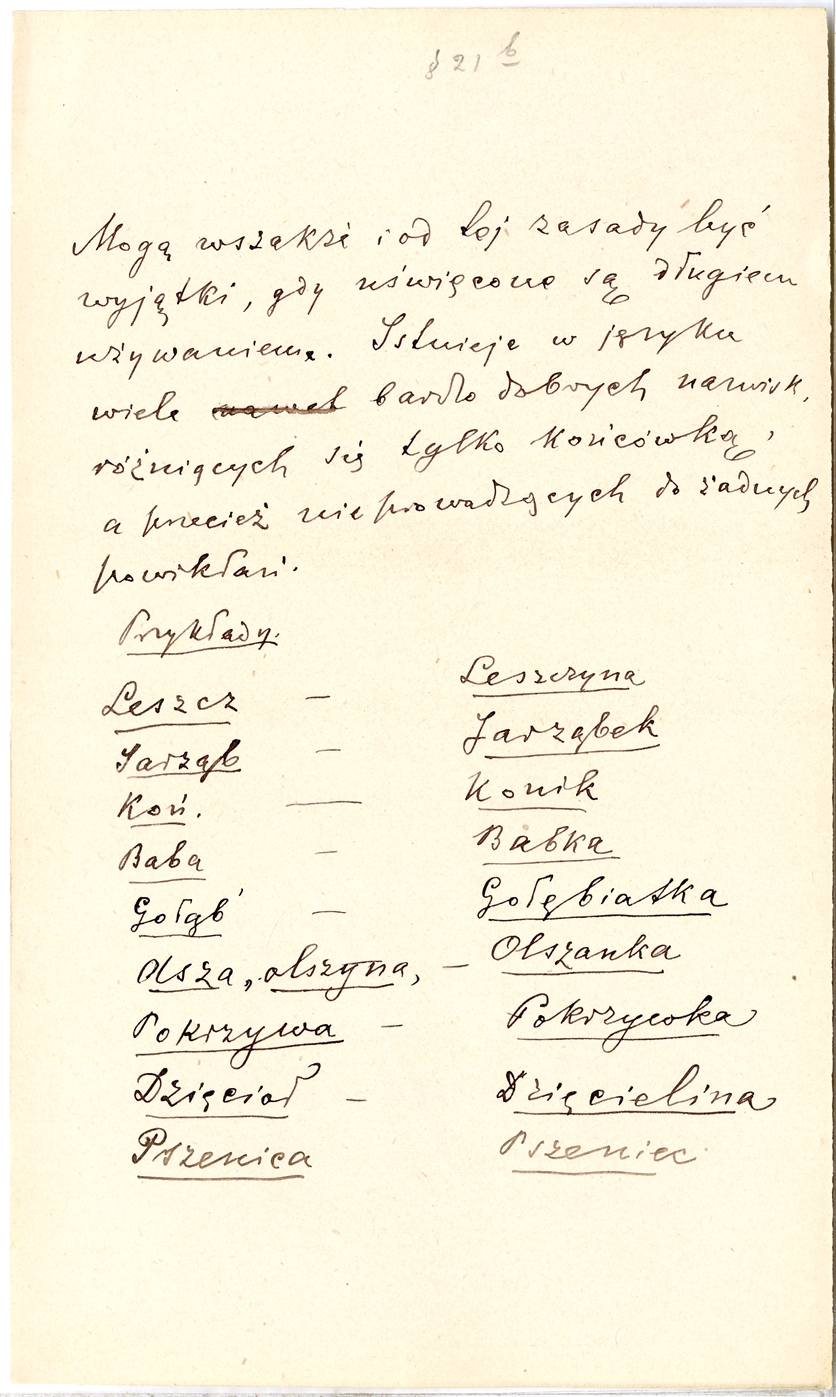 § 21 b
Mogą wszakże i od tej zasady być
wyjątki, gdy uświęcone są długiem
używaniem. Istnieje w języku
wiele nawet bardzo dobrych nazwisk,
różniących się tylko końcówką,
a przecież nieprowadzących do żadnych
powikłań.
Przykłady.
Leszcz — Leszczyna
Jarząb — Jarząbek
Koń. — Konik
Baba — Babka
Gołąb' — Gołębiatka
Olsza, olszyna, — Olszanka
Pokrzywa — Pokrzywka
Dzięcioł — Dzięcielina
Pszenica Pszeniec